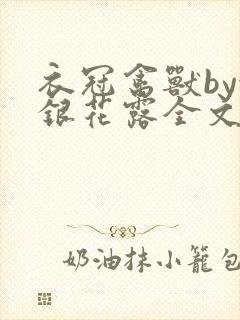 衣冠禽獸by
銀花露全文
奶油抹小籠包